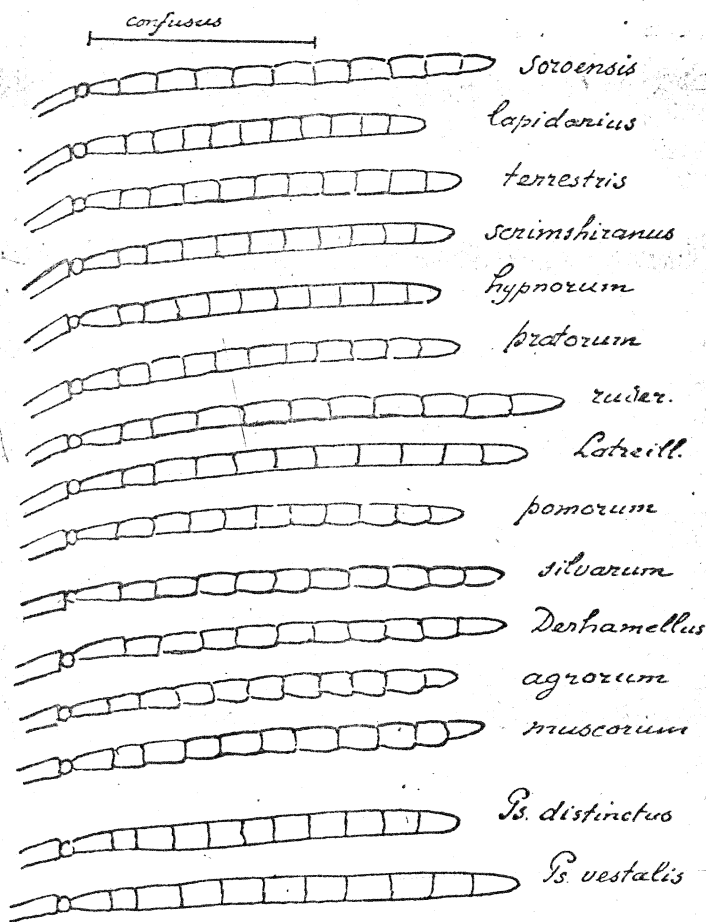 confusus
soroensis
lapidarius
terrestris
scrimshiranus
hypnorum
pratorum
ruder.
Latreill.
pomorum
silvarum
Derhamellus
agrorum
muscorum
Ps. distinctus
Ps. vestalis